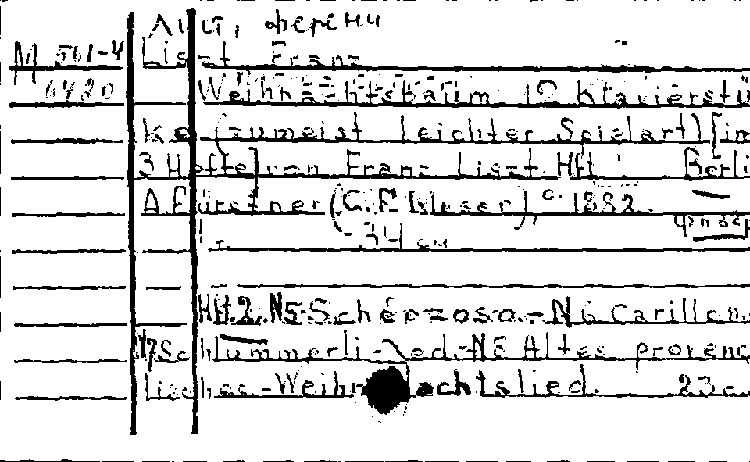 Лист, Ференц
М 561-4 Liszt Franz
6420 Weihnachtsbaum 12 Klavierstü
ke (zumeist leichter Spielart) [in
3 Hefte] von Franz Liszt Hft Berli
A. Fürstner (C. F. Meser), c. 1882.
34 см
Hft. 2. N5-Scherzoso.-N6 Carillon.
N7 Schlummerlied.-N8 Altes proven
lisches-Weihnachtslied. 23 c.